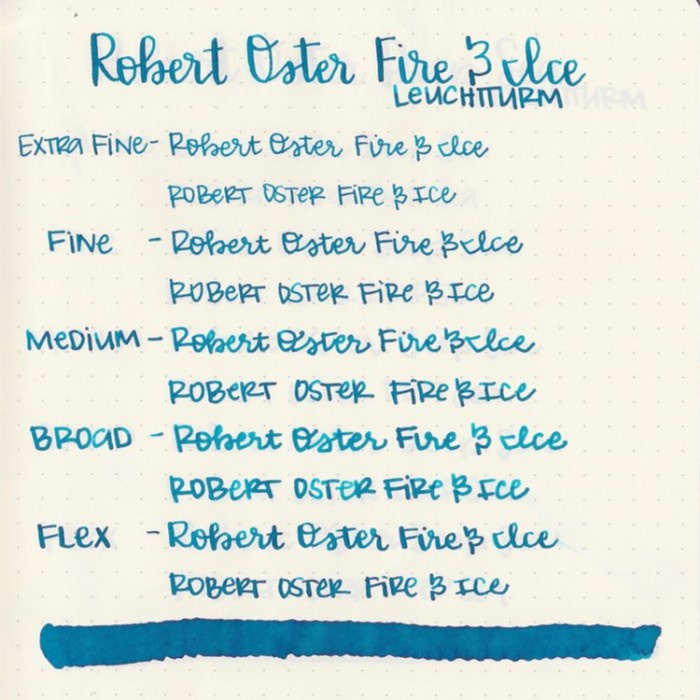 Robert Oster Fire & Ice
LEUCHTTURM
EXTRA FINE - Robert Oster Fire & Ice
ROBERT OSTER FIRE & ICE
FINE - Robert Oster Fire & Ice
ROBERT OSTER FIRE & ICE
MEDIUM - Robert Oster Fire & Ice
ROBERT OSTER FIRE & ICE
BROAD - Robert Oster Fire & Ice
ROBERT OSTER FIRE & ICE
FLEX - Robert Oster Fire & Ice
ROBERT OSTER FIRE & ICE